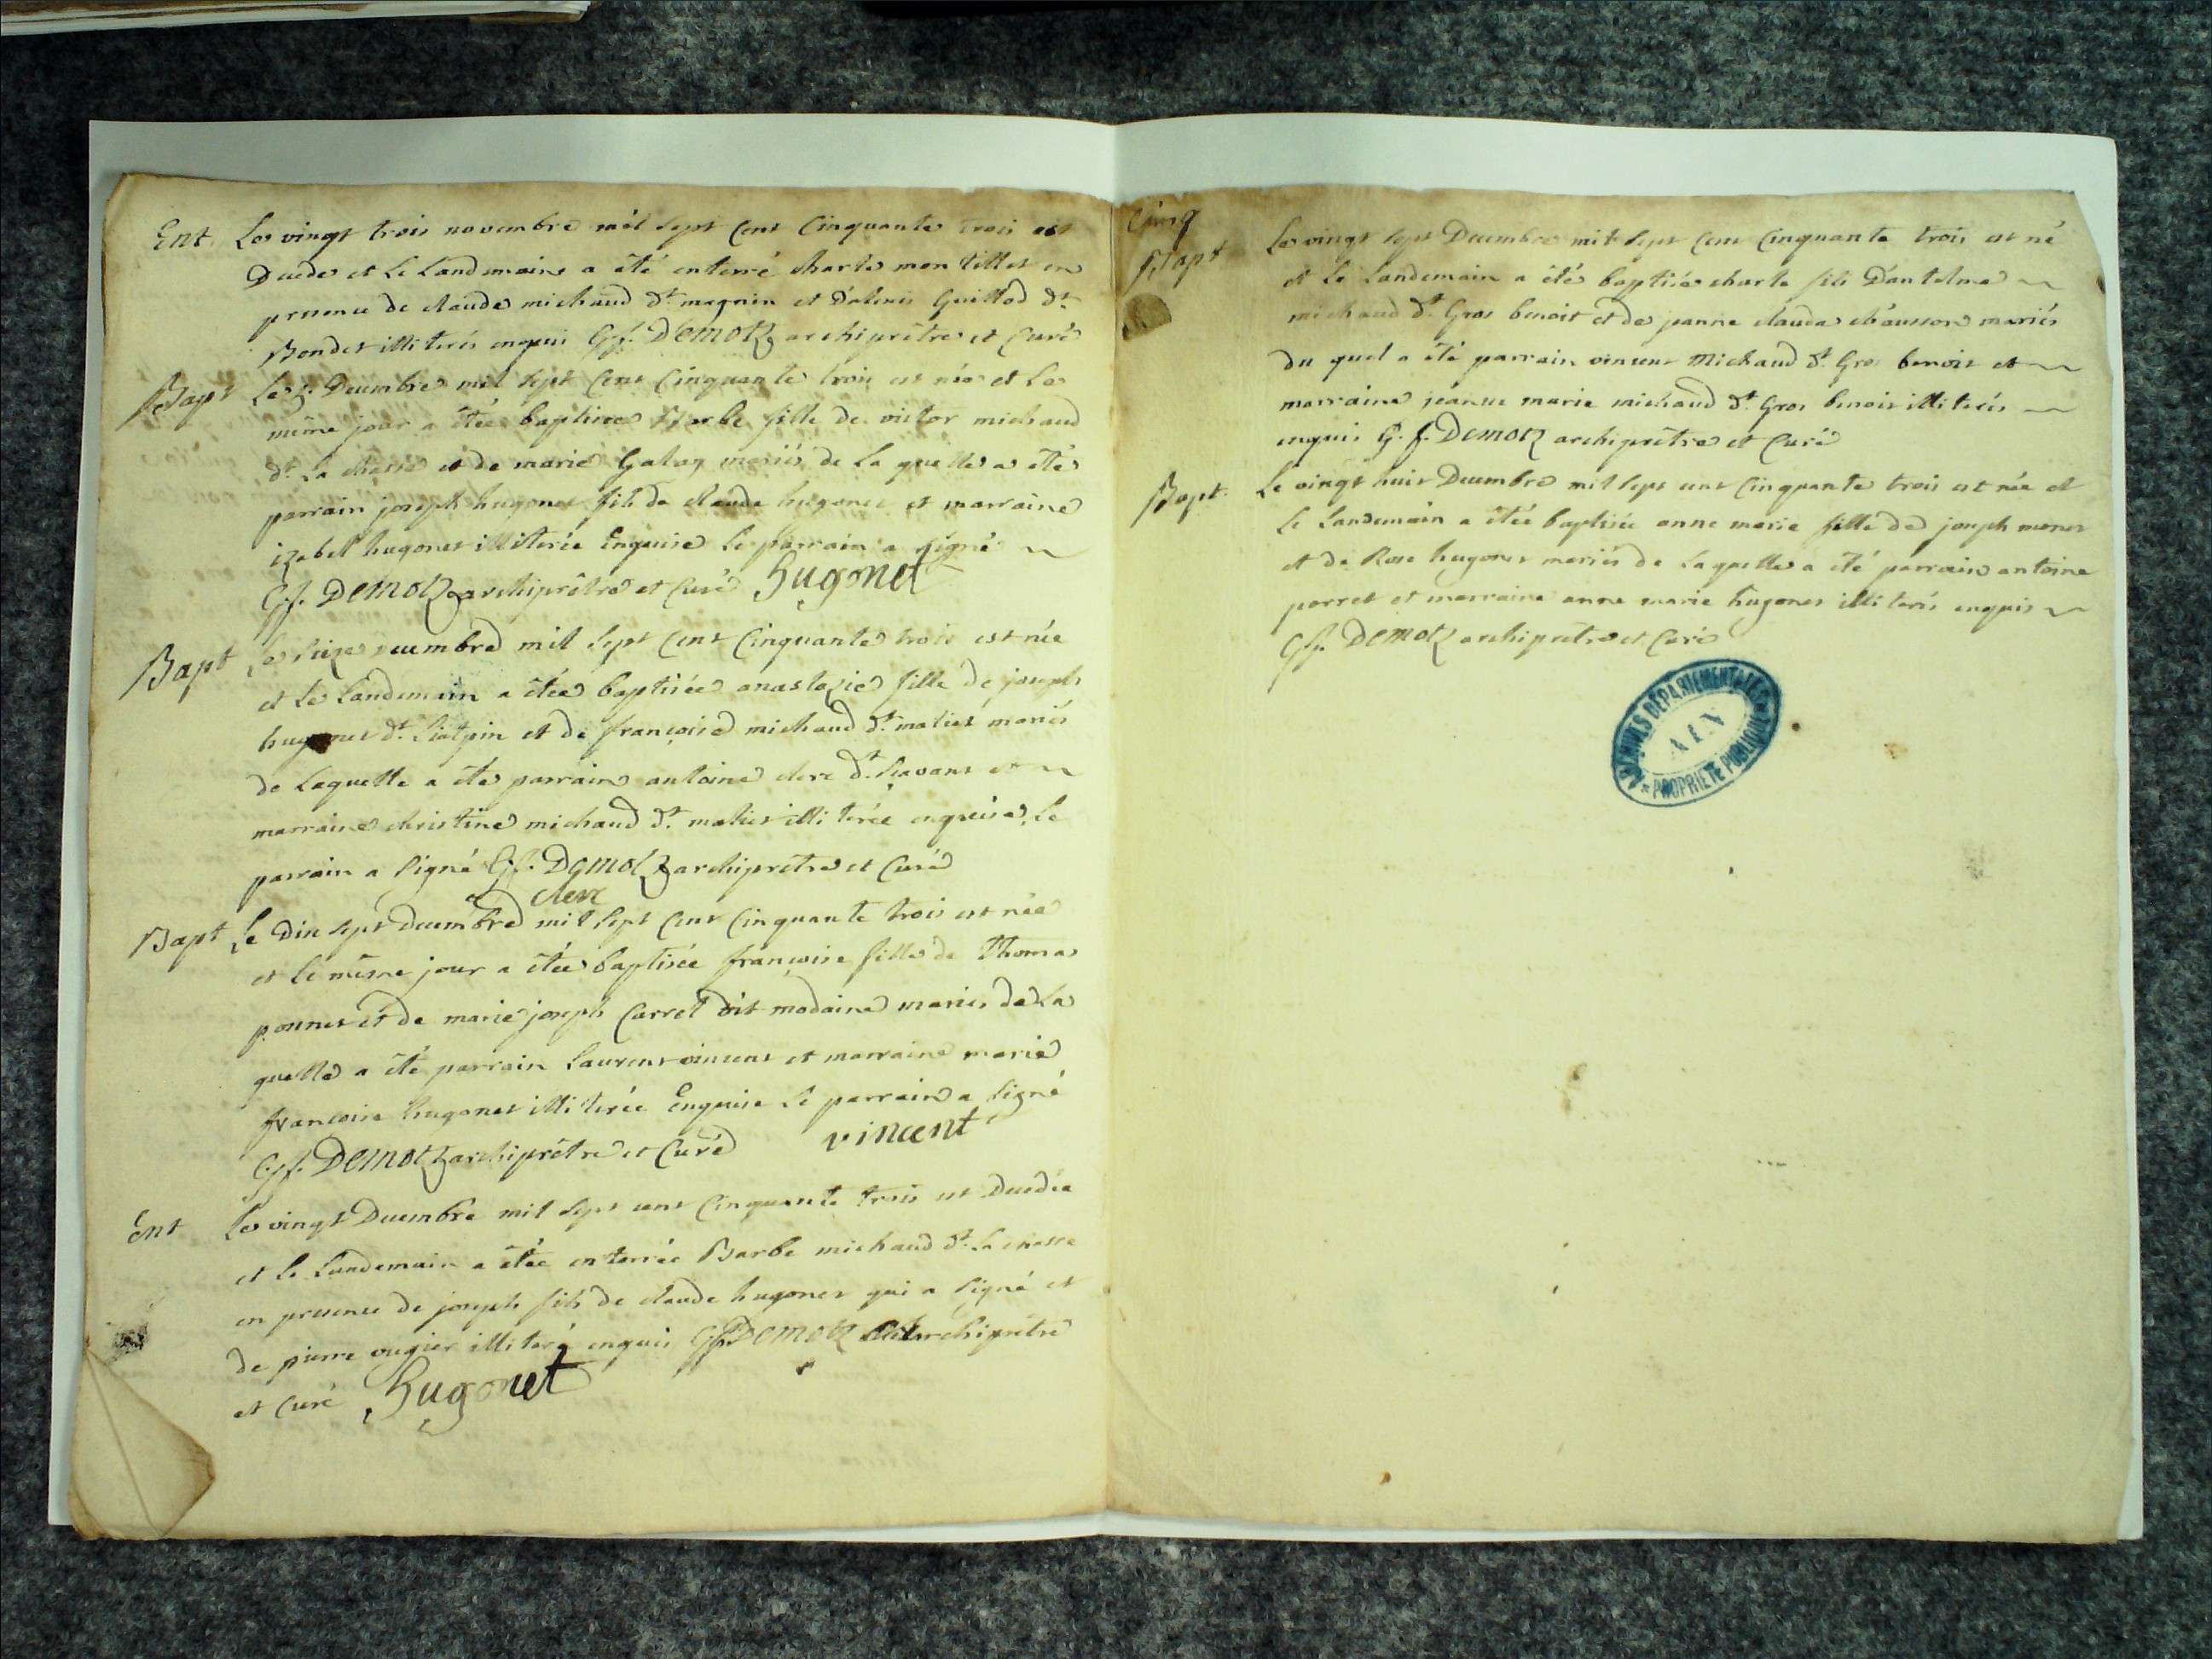 Ent
Le vingt trois novembre mil sept cent cinquante trois est
Décédé et le Landemain a été enterré charle montillet en
presence de claude michaud dt. magnin et d'alexis Guillod dt.
Bondet illiterés enquis Gf. Demotz archiprêtre et Curé
Bapt
Le 5. Decembre mil sept cent cinquante trois est née et le
même jour a étée baptisée Barbe fille de victor michaud
dt. La chasse et de marie Galay mariés de la quelle a été
parrain joseph hugonet fils de claude hugonet et marraine
izabel hugonet illiterée Enquise le parrain a signé
Gf. Demotz archiprêtre et Curé Hugonet
Bapt
Le seize decembre mil sept cent cinquante trois est née
et le landemain a étée baptisée anastazie fille de joseph
hugonet dt. et de françoise michaud dt. maliet mariés
de Laquelle a été parrain antoine clerc dt. Savant et
marraine christine michaud dt. maliet illiterée enquise, le
parrain a signé Gf. Demotz archiprêtre et Curé
clerc
Bapt
Le Dix sept decembre mil sept cent cinquante trois est née
et le même jour a étée baptisée françoise fille de Thomas
ponnet et de marie joseph Carrel dit modaine mariés de la
quelle a été parrain Laurent vincent et marraine marie
francoise hugonet illiterée Enquise le parrain a signé
Gf. Demotz archiprêtre et Curé vincent
Ent
Le vingt Decembre mil sept cent cinquante trois est Decedée
et le Landemain a étée enterrée Barbe michaud dt. La chasse
en presence de joseph fils de claude hugonet qui a signé et
de pierre ougier illiteré enquis Gf. Demotz archiprêtre
et Curé Hugonet
Cinq
Bapt
Le vingt sept Decembre mil sept cent cinquante trois est né
et le Landemain a été baptisé charle fils D'antelme
michaud dt. Gros benoit et de jeanne claude chausson mariés
du quel a été parrain vincent Michaud dt. Gros benoit et
marraine jeanne marie michaud dt. Gros benoit illiterés
enquis G. f. Demotz archiprêtre et Curé
Bapt.
Le vingt huit Decembre mil sept cent cinquante trois est née et
le Landemain a étée baptisée anne marie fille de joseph monet
et de Rose hugonet mariés de Laquelle a été parrain antoine
porret et marraine anne marie hugonet illiterés enquis
Gf. Demotz archiprêtre et Curé
ARCHIVES DÉPARTEMENTALES
AIN
* PROPRIÉTÉ PUBLIQUE *